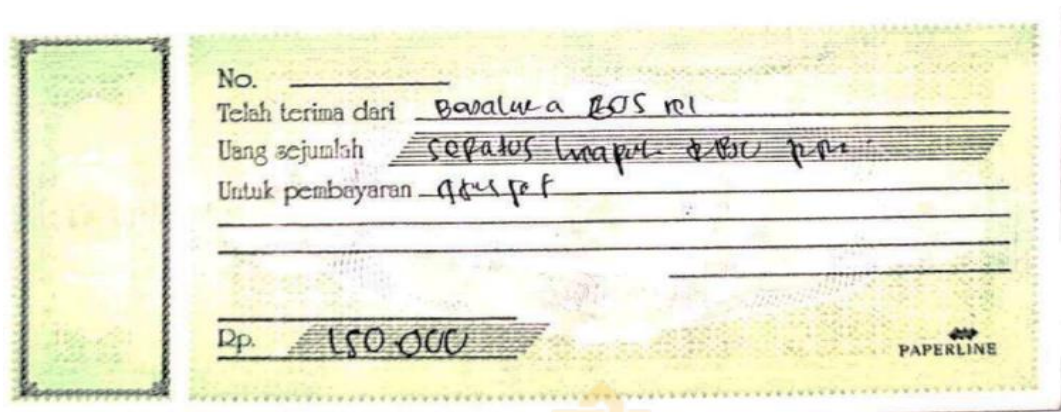 No.
Telah terima dari Bendahara BOS
Uang sejumlah seratus lima puluh ribu
Untuk pembayaran
Rp. 150.000
PAPERLINE